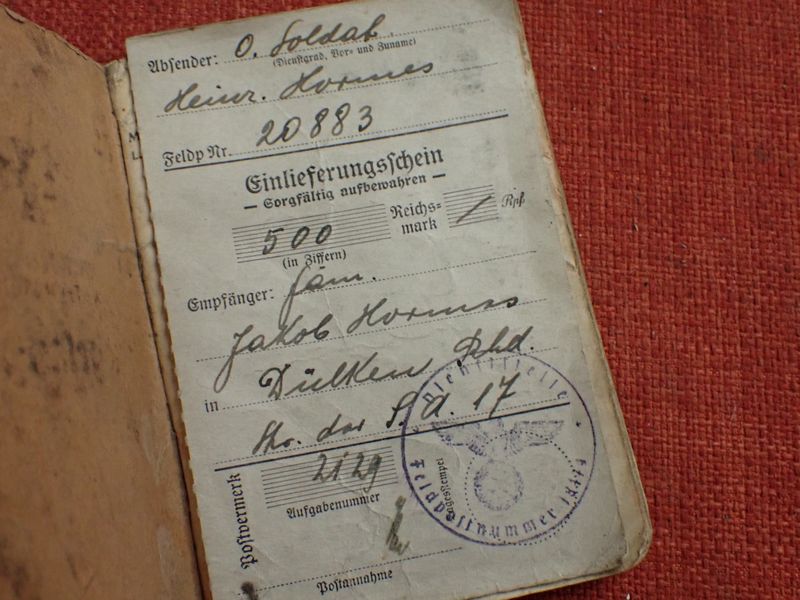 Absender: O. Soldat
(Dienstgrad, Vor- und Zuname)
Heinr. Hormes
Feldp Nr. 20883
Einlieferungsschein
— Sorgfältig aufbewahren —
500 Reichs- / Rpf
mark
(in Ziffern)
Empfänger: Fam.
Jakob Hormes
in Dülken Rhd.
Str. der S.A. 17
Postvermerk
2129
Aufgabenummer
Postannahme
Dienststelle
Feldpostnummer